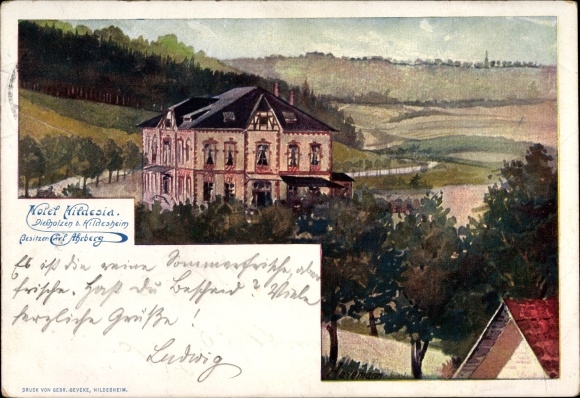 Hotel Hildesia.
Diekholzen b. Hildesheim
Besitzer: Carl Ahrberg
Es ist die reine Sommerfrische, aber
frische. Hast Du Bescheid? Viele
herzliche Grüße!
Ludwig
DRUCK VON GEBR. GEVEKE, HILDESHEIM.